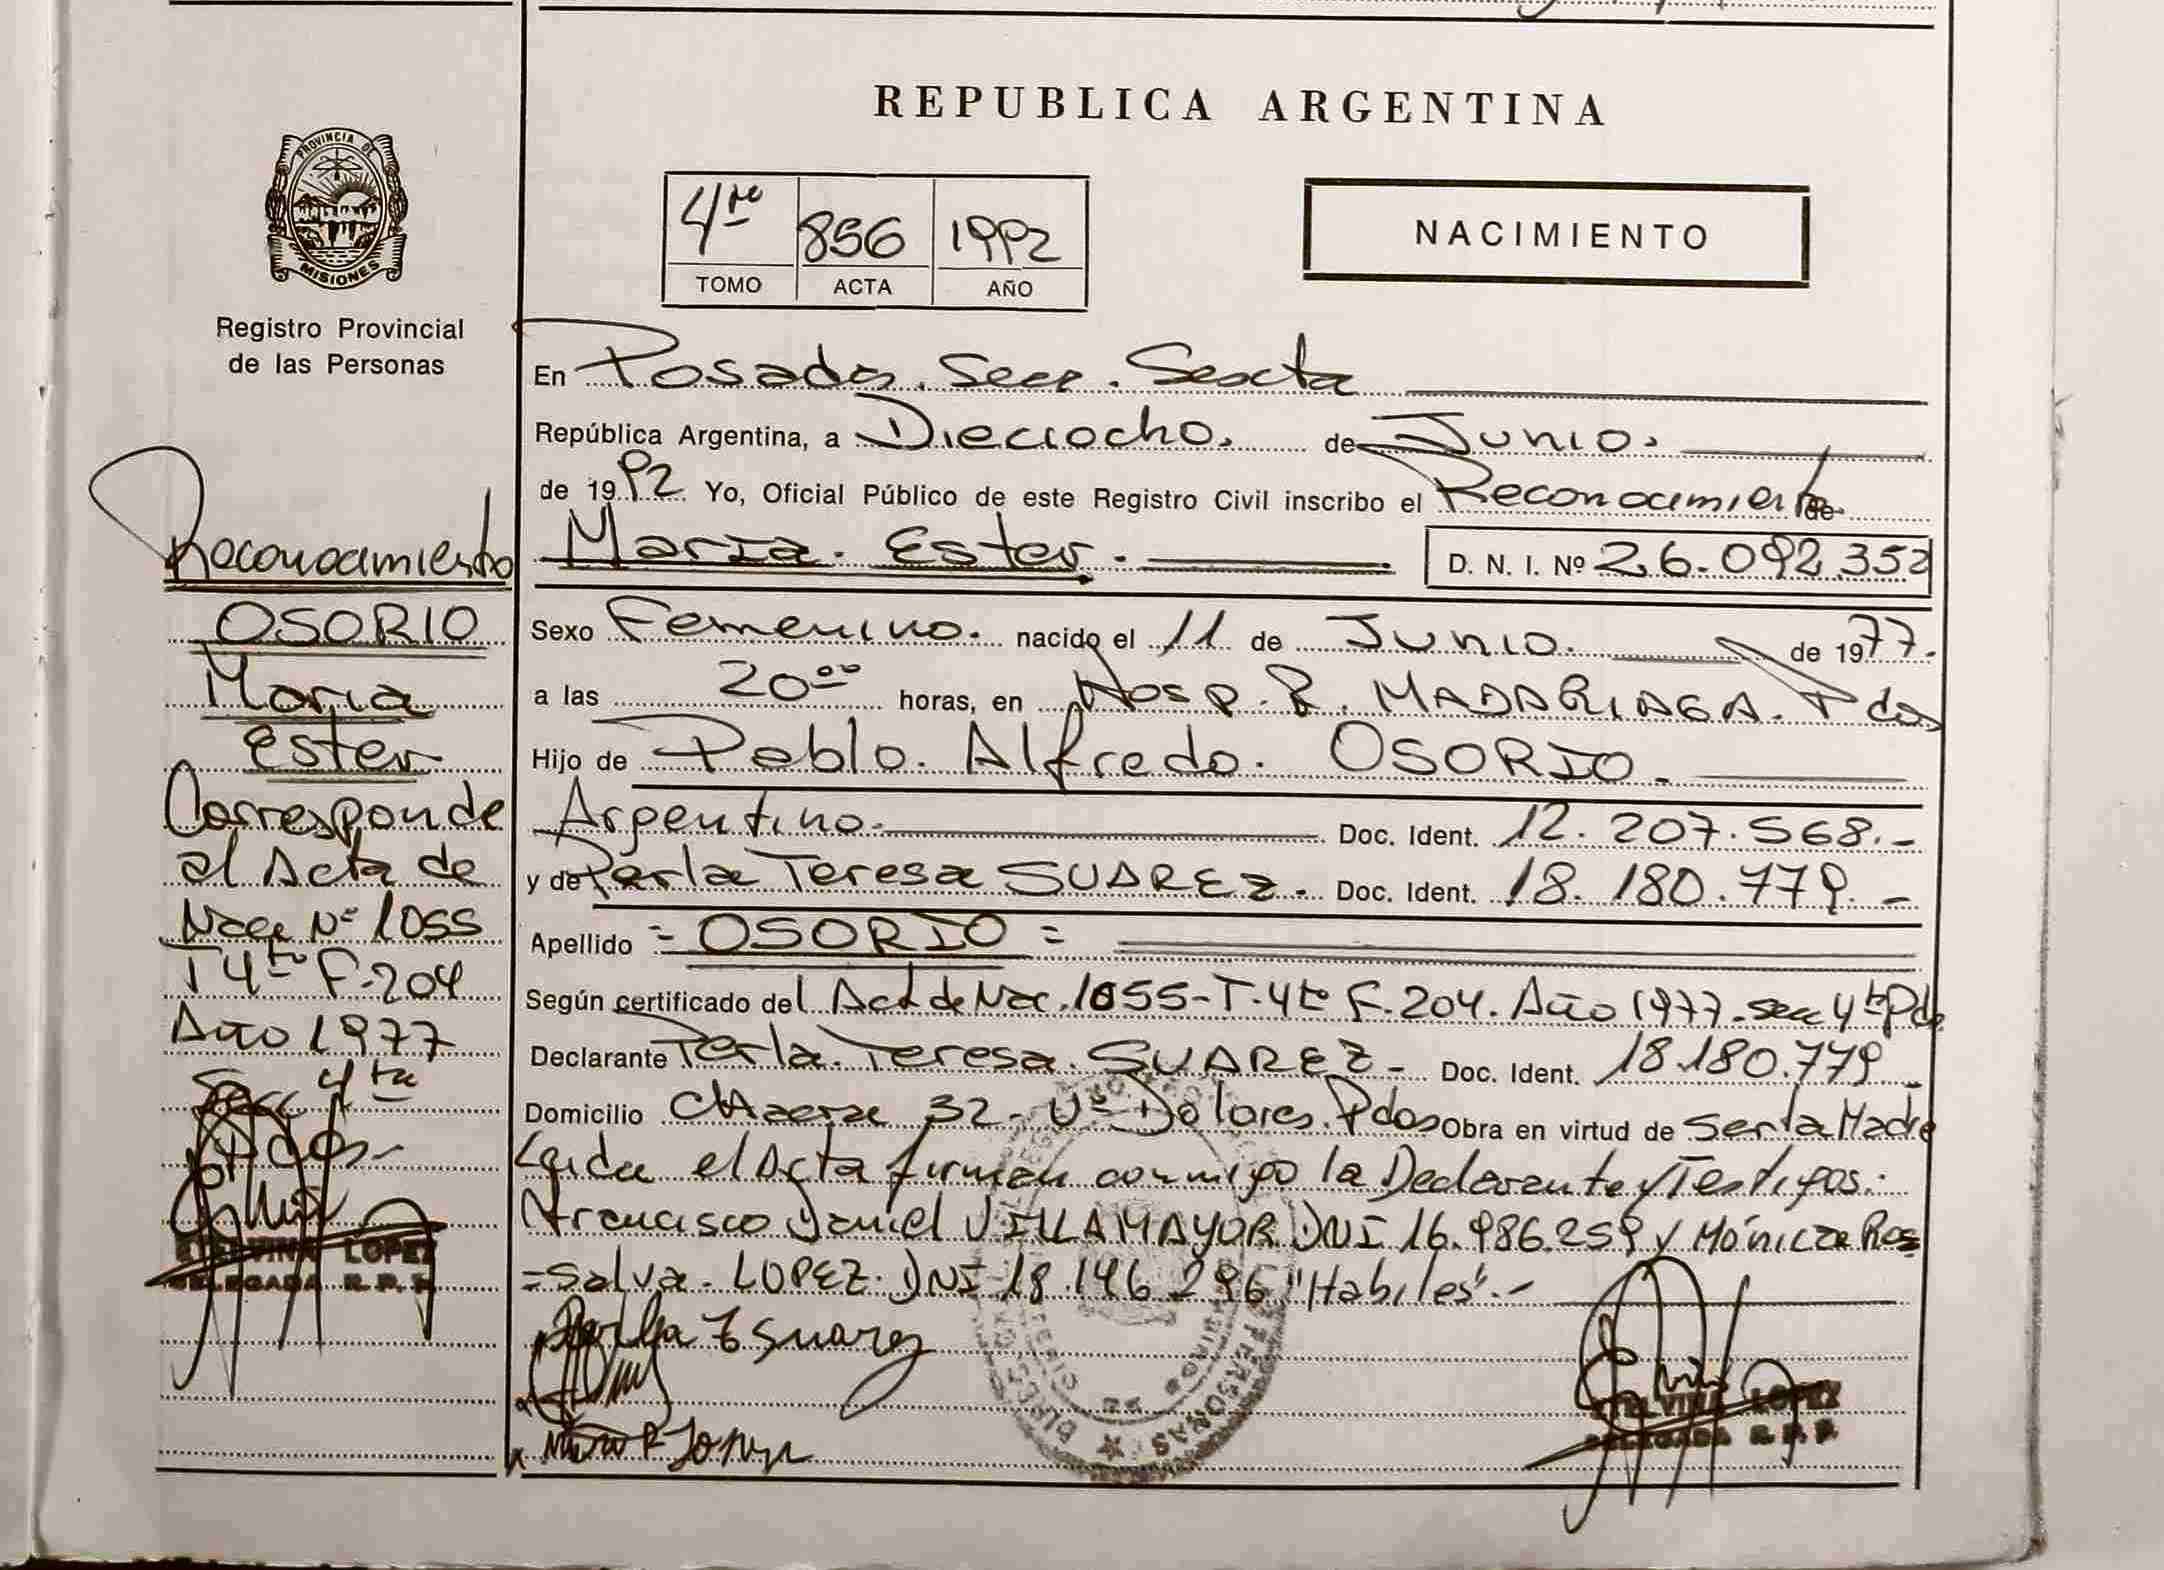 REPUBLICA ARGENTINA
PROVINCIA DE
MISIONES
Registro Provincial
de las Personas
4to 856 1992
TOMO ACTA AÑO
NACIMIENTO
En Posadas. Secc. Sexta
República Argentina, a Dieciocho. de Junio.
de 1992 Yo, Oficial Público de este Registro Civil inscribo el Reconocimiento de
Maria. Ester. D. N. I. Nº 26.092.352
Sexo Femenino. nacido el 11 de Junio. de 1977.
a las 20⁰⁰ horas, en Hosp. R. MADARIAGA. Pdas
Hijo de Pablo. Alfredo. OSORIO.
Argentino. Doc. Ident. 12.207.568.-
y de Perla Teresa SUAREZ. Doc. Ident. 18.180.779.-
Apellido = OSORIO =
Según certificado del Act de Nac. 1055-T.4to F.204. Año 1977. secc 4ta Pdas
Declarante Perla. Teresa. SUAREZ- Doc. Ident. 18.180.779-
Domicilio Chacra 32- Vª Dolores. Pdas Obra en virtud de Ser la Madre
Leida el Acta firman conmigo la Declarante y Testigos:
Francisco Daniel VILLAMAYOR DNI 16.986.259 y Mónica Ros
=Salva. LOPEZ. DNI 18.146.296 "Habiles".-
Perla T Suarez
ETELVINA LOPEZ
DELEGADA R.P.P.
Reconocimiento
OSORIO
Maria
Ester
Corresponde
al Acta de
Nacc Nº 1055
T 4to F.204
Año 1977
Secc 4ta
Pdas-
ETELVINA LOPEZ
DELEGADA R.P.P.